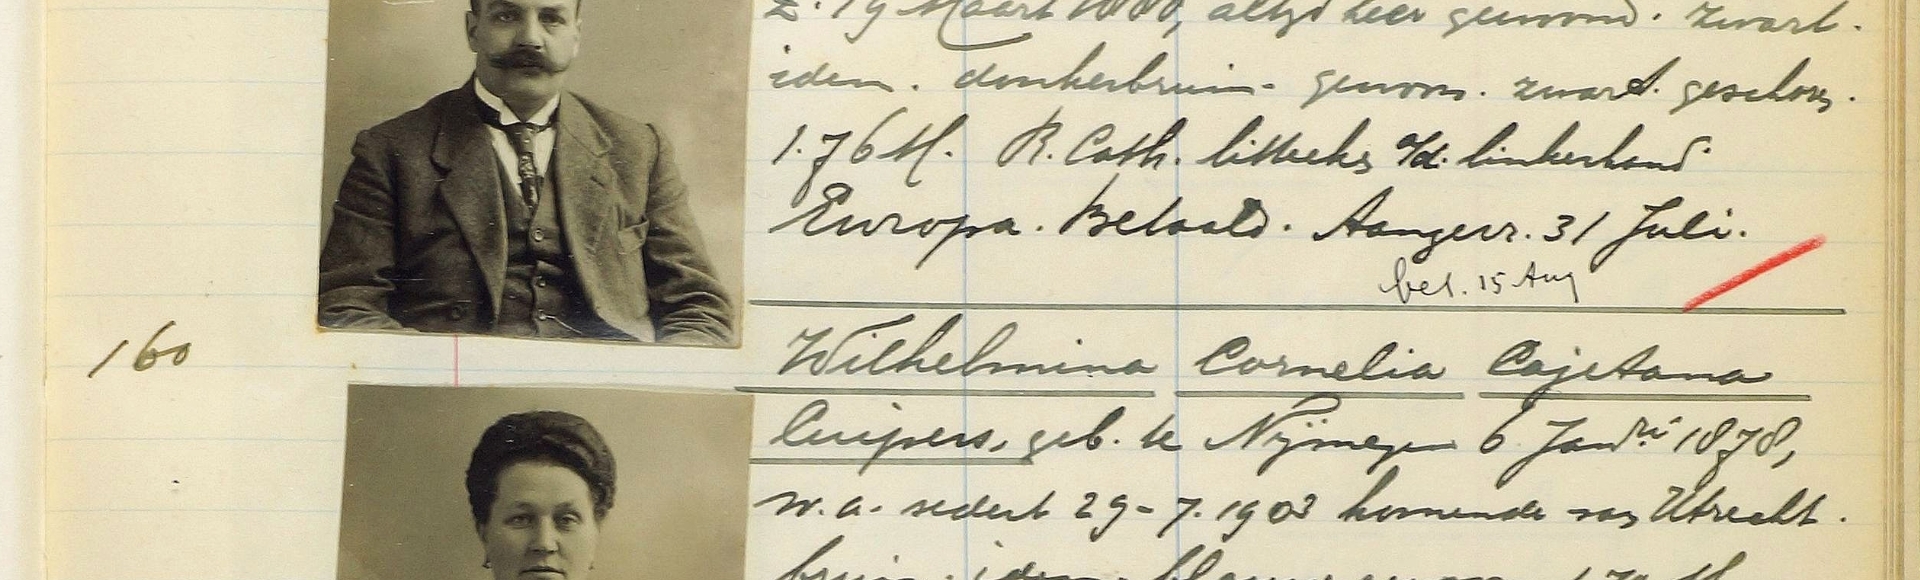 z. 19 Maart 1880, altyd hier gewoond. zwart.
idem. donkerbruin. gewoon. zwart. geschoren.
1.76 M. R. Cath. litteeken o/d. linkerhand
Europa. Betaald. Aangevr. 31 Juli.
bet. 15 Aug
160
Wilhelmina Cornelia Cajetana
Cuijpers, geb. te Nijmegen 6 Janri 1878,
w.a. sedert 29-7.1903 komende van Utrecht.
bruin. idem. blauw. gewoon. 1.70 M.